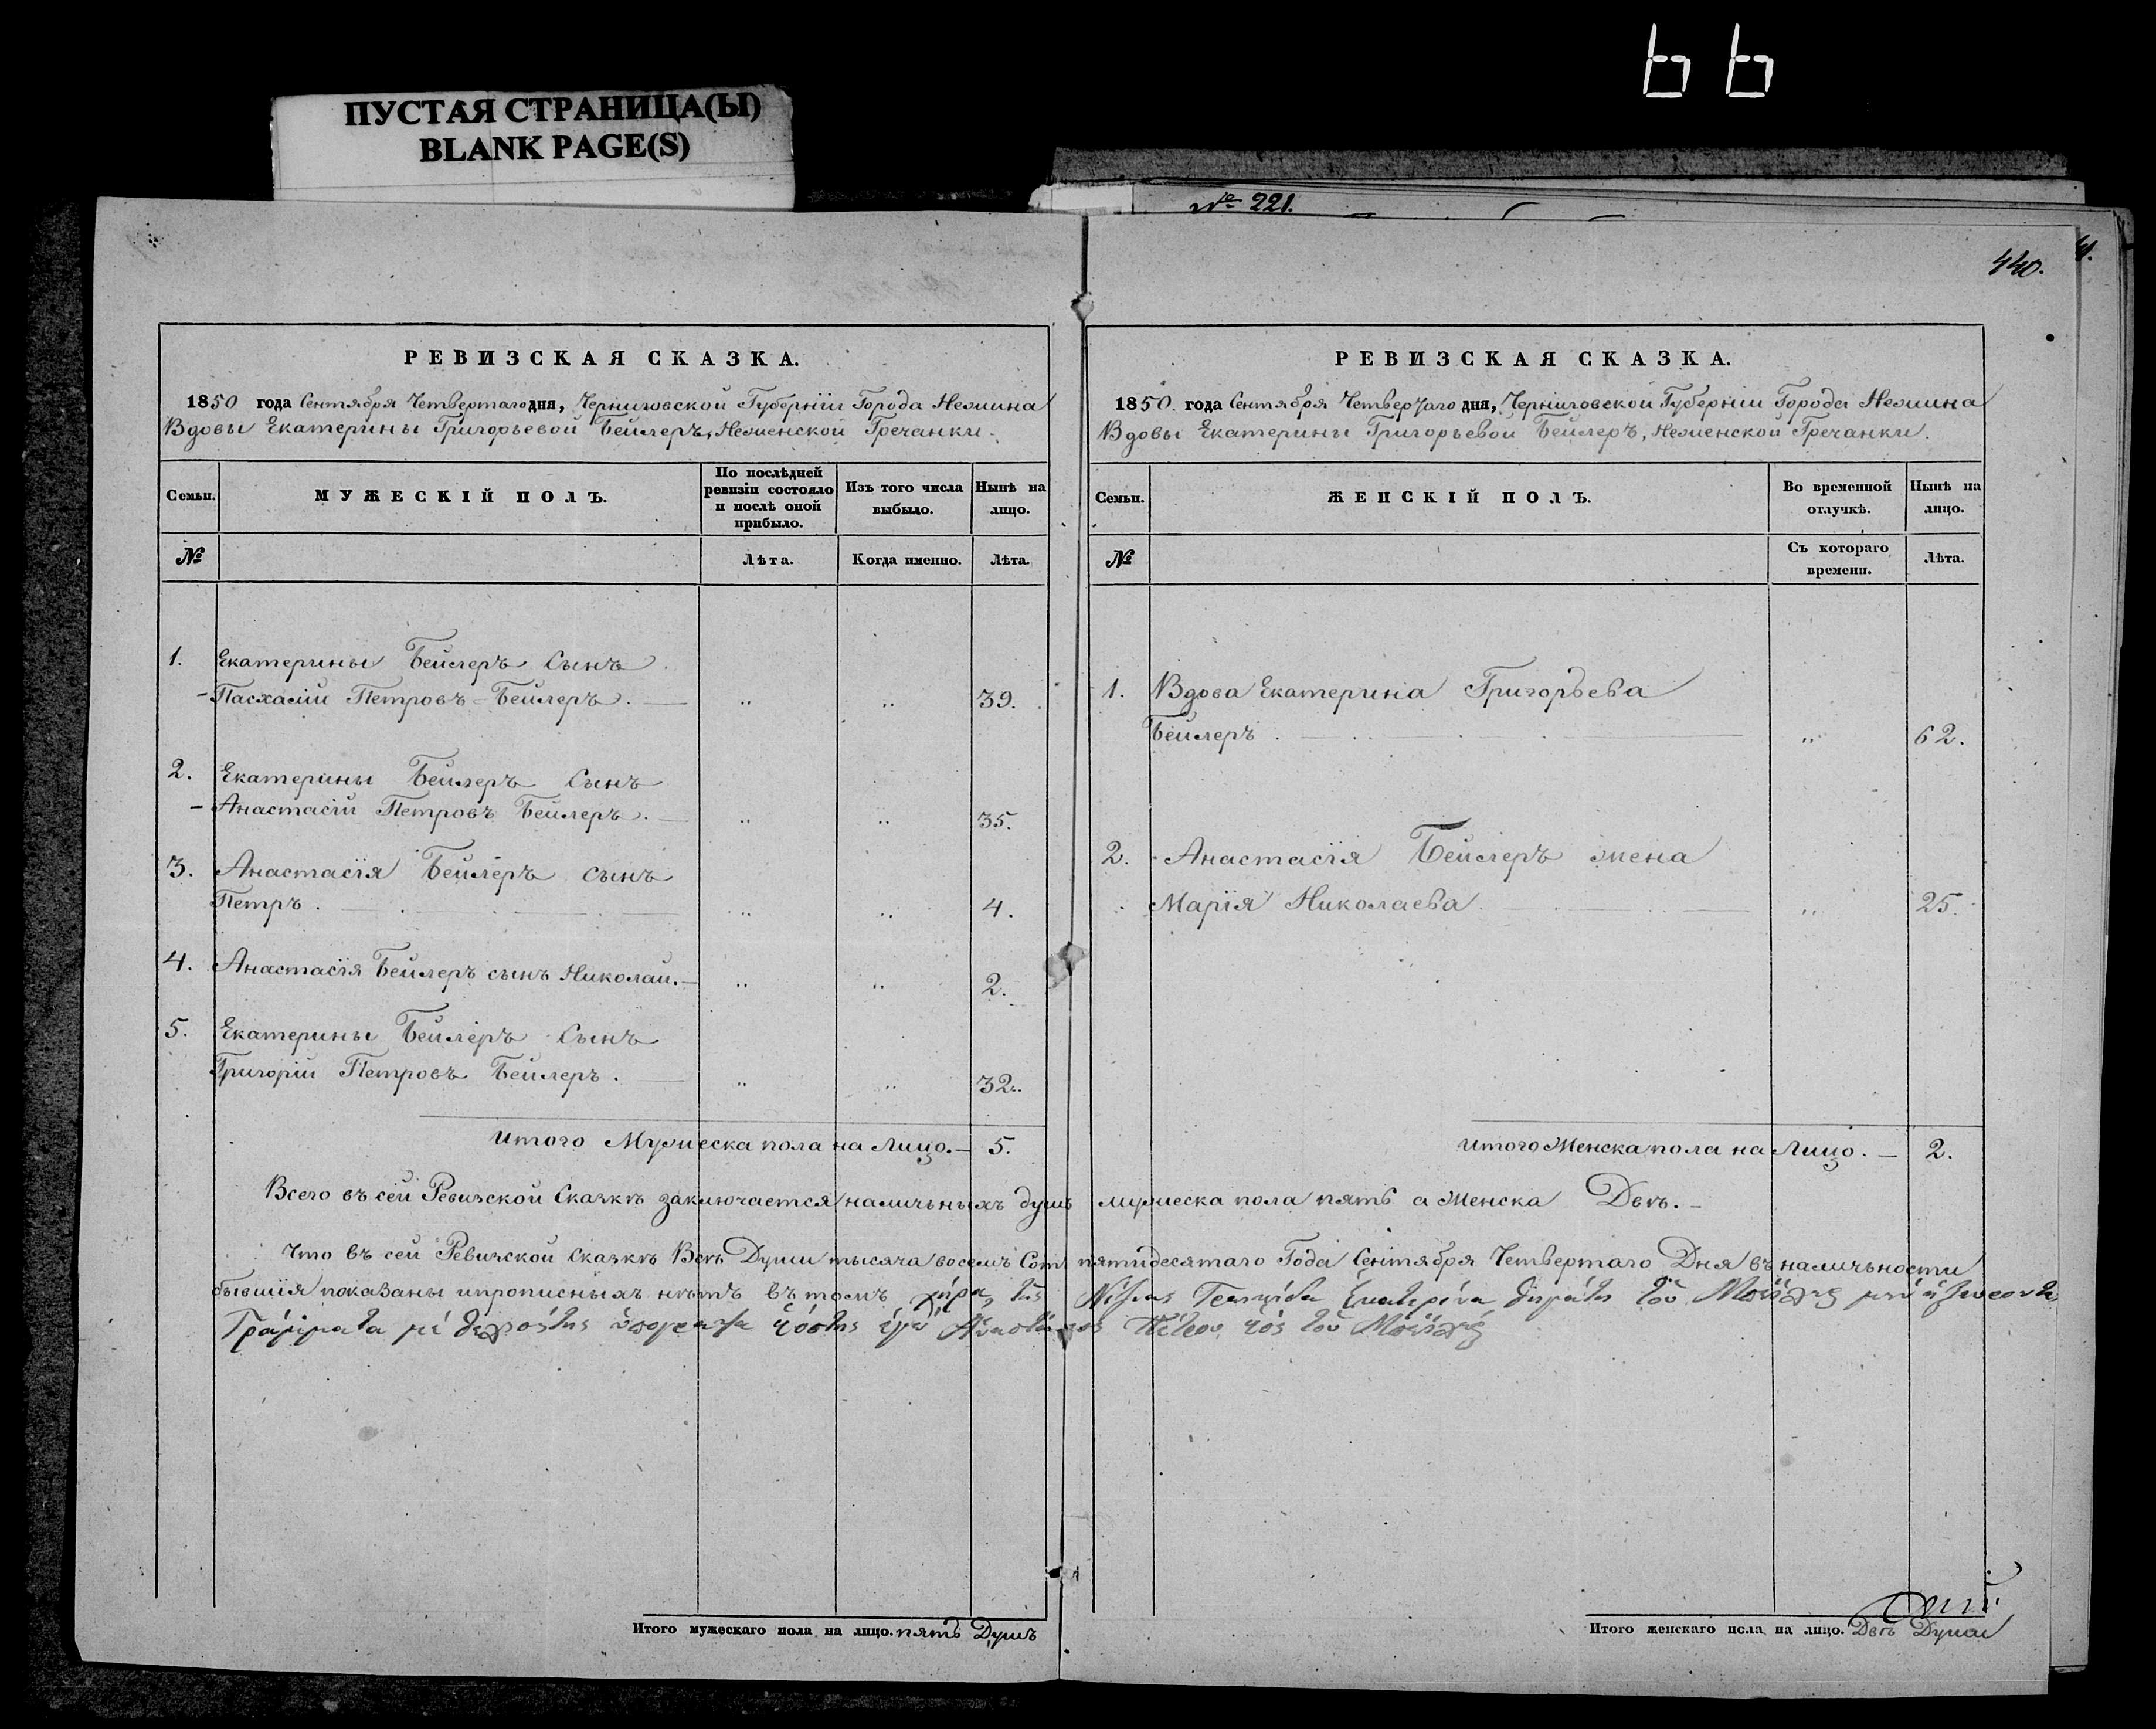 ПУСТАЯ СТРАНИЦА(Ы)
BLANK PAGE(S)
№ 221.
440.
РЕВИЗСКАЯ СКАЗКА.
1850 года Сентября Четвертаго дня, Черниговской Губерніи Города Нежина
Вдовы Екатерины Григорьевой Бейлеръ, Неженской Гречанки.
Семьи.
МУЖЕСКІЙ ПОЛЪ.
По послѣдней ревизіи состояло и послѣ оной прибыло.
Изъ того числа выбыло.
Нынѣ на лицо.
№
Лѣта.
Когда именно.
Лѣта.
1. Екатерины Бейлеръ Сынъ
Пасхалій Петровъ Бейлеръ. — „ „ 39.
2. Екатерины Бейлеръ Сынъ
Анастасій Петровъ Бейлеръ. — „ „ 35.
3. Анастасія Бейлеръ сынъ
Петръ. — „ „ 4.
4. Анастасія Бейлеръ сынъ Николай. — „ „ 2.
5. Екатерины Бейлеръ Сынъ
Григорій Петровъ Бейлеръ. — „ „ 32.
Итого Мужеска пола на Лицо. — 5.
РЕВИЗСКАЯ СКАЗКА.
1850. года Сентября Четвертаго дня, Черниговской Губерніи Города Нежина
Вдовы Екатерины Григорьевой Бейлеръ, Неженской Гречанки.
Семьи.
ЖЕНСКІЙ ПОЛЪ.
Во временной отлучкѣ.
Нынѣ на лицо.
№
Съ котораго времени.
Лѣта.
1. Вдова Екатерина Григорьева
Бейлеръ. — „ 62.
2. Анастасія Бейлеръ жена
Марія Николаева. — „ 25.
Итого Женска пола на Лицо. — 2.
Всего въ сей Ревизской Сказкѣ заключается наличныхъ душъ мужеска пола пять а Женска Двѣ. —
Что въ сей Ревизской Сказкѣ Всѣ Души тысяча восемь Сотъ пятидесятаго Года Сентября Четвертаго Дня въ наличьности
бывшія показаны ипрописныхъ нѣтъ въ томъ χήρα τῆς Νίζνας
Γράμματα
Итого мужескаго пола на лицо. пять Душъ
Итого женскаго пола на лицо. Двѣ Души